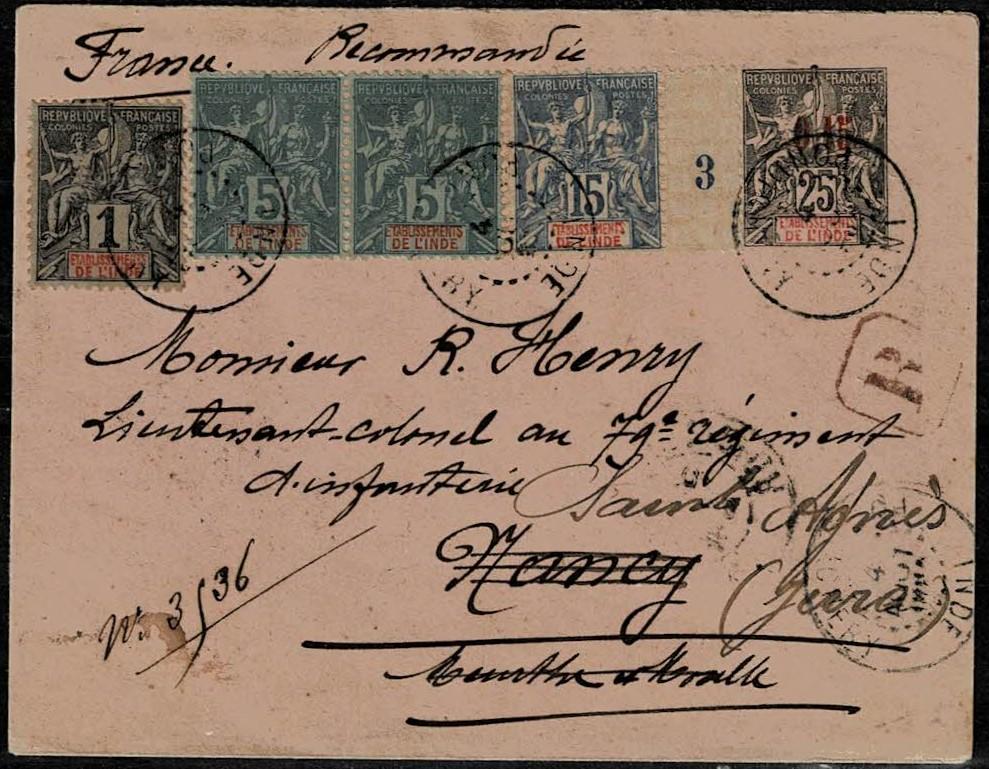 France. Recommandée
REPVBLIQUE FRANÇAISE
COLONIES POSTES
1
ETABLISSEMENTS
DE L'INDE
REPVBLIQUE FRANÇAISE
COLONIES POSTES
5
ETABLISSEMENTS
DE L'INDE
REPVBLIQUE FRANÇAISE
COLONIES POSTES
5
ETABLISSEMENTS
DE L'INDE
REPVBLIQUE FRANÇAISE
COLONIES POSTES
15
ETABLISSEMENTS
DE L'INDE
3
REPVBLIQUE FRANÇAISE
COLONIES POSTES
0,15
25
ETABLISSEMENTS
DE L'INDE
INDE
INDE
INDE
R
Monsieur R. Henry
Lieutenant-colonel au 79e régiment
d'infanterie Saint Agnès
Nancy (Jura)
No 3/536
Meurthe et Moselle
4 AOUT
INDE